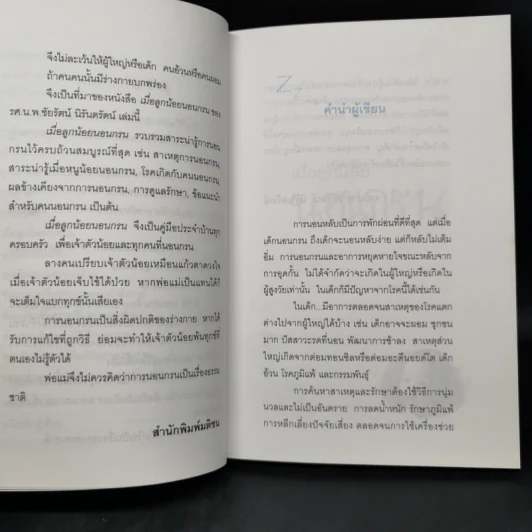 จึงไม่ละเว้นให้ผู้ใหญ่หรือเด็ก คนอ้วนหรือคนผอม
ถ้าคนคนนั้นมีร่างกายบกพร่อง
จึงเป็นที่มาของหนังสือ เมื่อลูกน้อยนอนกรน ของ
รศ.น.พ.ชัยรัตน์ นิรันตรัตน์ เล่มนี้
เมื่อลูกน้อยนอนกรน รวบรวมสาระน่ารู้การนอน
กรนไว้ครบถ้วนสมบูรณ์ที่สุด เช่น สาเหตุการนอนกรน,
สาระน่ารู้เมื่อหนูน้อยนอนกรน, โรคเกิดกับคนนอนกรน,
ผลข้างเคียงจากการนอนกรน, การดูแลรักษา, ข้อแนะนำ
สำหรับคนนอนกรน เป็นต้น
เมื่อลูกน้อยนอนกรน จึงเป็นคู่มือประจำบ้านทุก
ครอบครัว เพื่อเจ้าตัวน้อยและทุกคนที่นอนกรน
ลางคนเปรียบเจ้าตัวน้อยเหมือนแก้วตาดวงใจ
เมื่อเจ้าตัวน้อยเจ็บไข้ได้ป่วย หากพ่อแม่เป็นแทนได้ก็
จะเต็มใจแบกทุกข์นั้นเสียเอง
การนอนกรนเป็นสิ่งผิดปกติของร่างกาย หากได้
รับการแก้ไขที่ถูกวิธี ย่อมจะทำให้เจ้าตัวน้อยพ้นทุกข์ที่
ตนเองไม่รู้ตัวได้
พ่อแม่จึงไม่ควรคิดว่าการนอนกรนเป็นเรื่องธรรม
ชาติ
สำนักพิมพ์มติชน
คำนำผู้เขียน
การนอนหลับเป็นการพักผ่อนที่ดีที่สุด แต่เมื่อ
เด็กนอนกรน ถึงเด็กจะนอนหลับง่าย แต่ก็หลับไม่เต็ม
อิ่ม การนอนกรนและอาการหยุดหายใจขณะหลับจาก
การอุดกั้น ไม่ได้จำกัดว่าจะเกิดในผู้ใหญ่หรือเกิดใน
ผู้สูงวัยเท่านั้น ในเด็กก็มีปัญหาจากโรคนี้ได้เช่นกัน
ในเด็ก...มีอาการตลอดจนสาเหตุของโรคแตก
ต่างไปจากผู้ใหญ่ได้บ้าง เช่น เด็กอาจจะผอม ซุกซน
มาก ปัสสาวะรดที่นอน พัฒนาการช้าลง สาเหตุส่วน
ใหญ่เกิดจากต่อมทอนซิลหรือต่อมอะดีนอยด์โต เด็ก
อ้วน โรคภูมิแพ้ และกรรมพันธุ์
การค้นหาสาเหตุและรักษาต้องใช้วิธีการนุ่ม
นวลและไม่เป็นอันตราย การลดน้ำหนัก รักษาภูมิแพ้
การหลีกเลี่ยงปัจจัยเสี่ยง ตลอดจนการใช้เครื่องช่วย